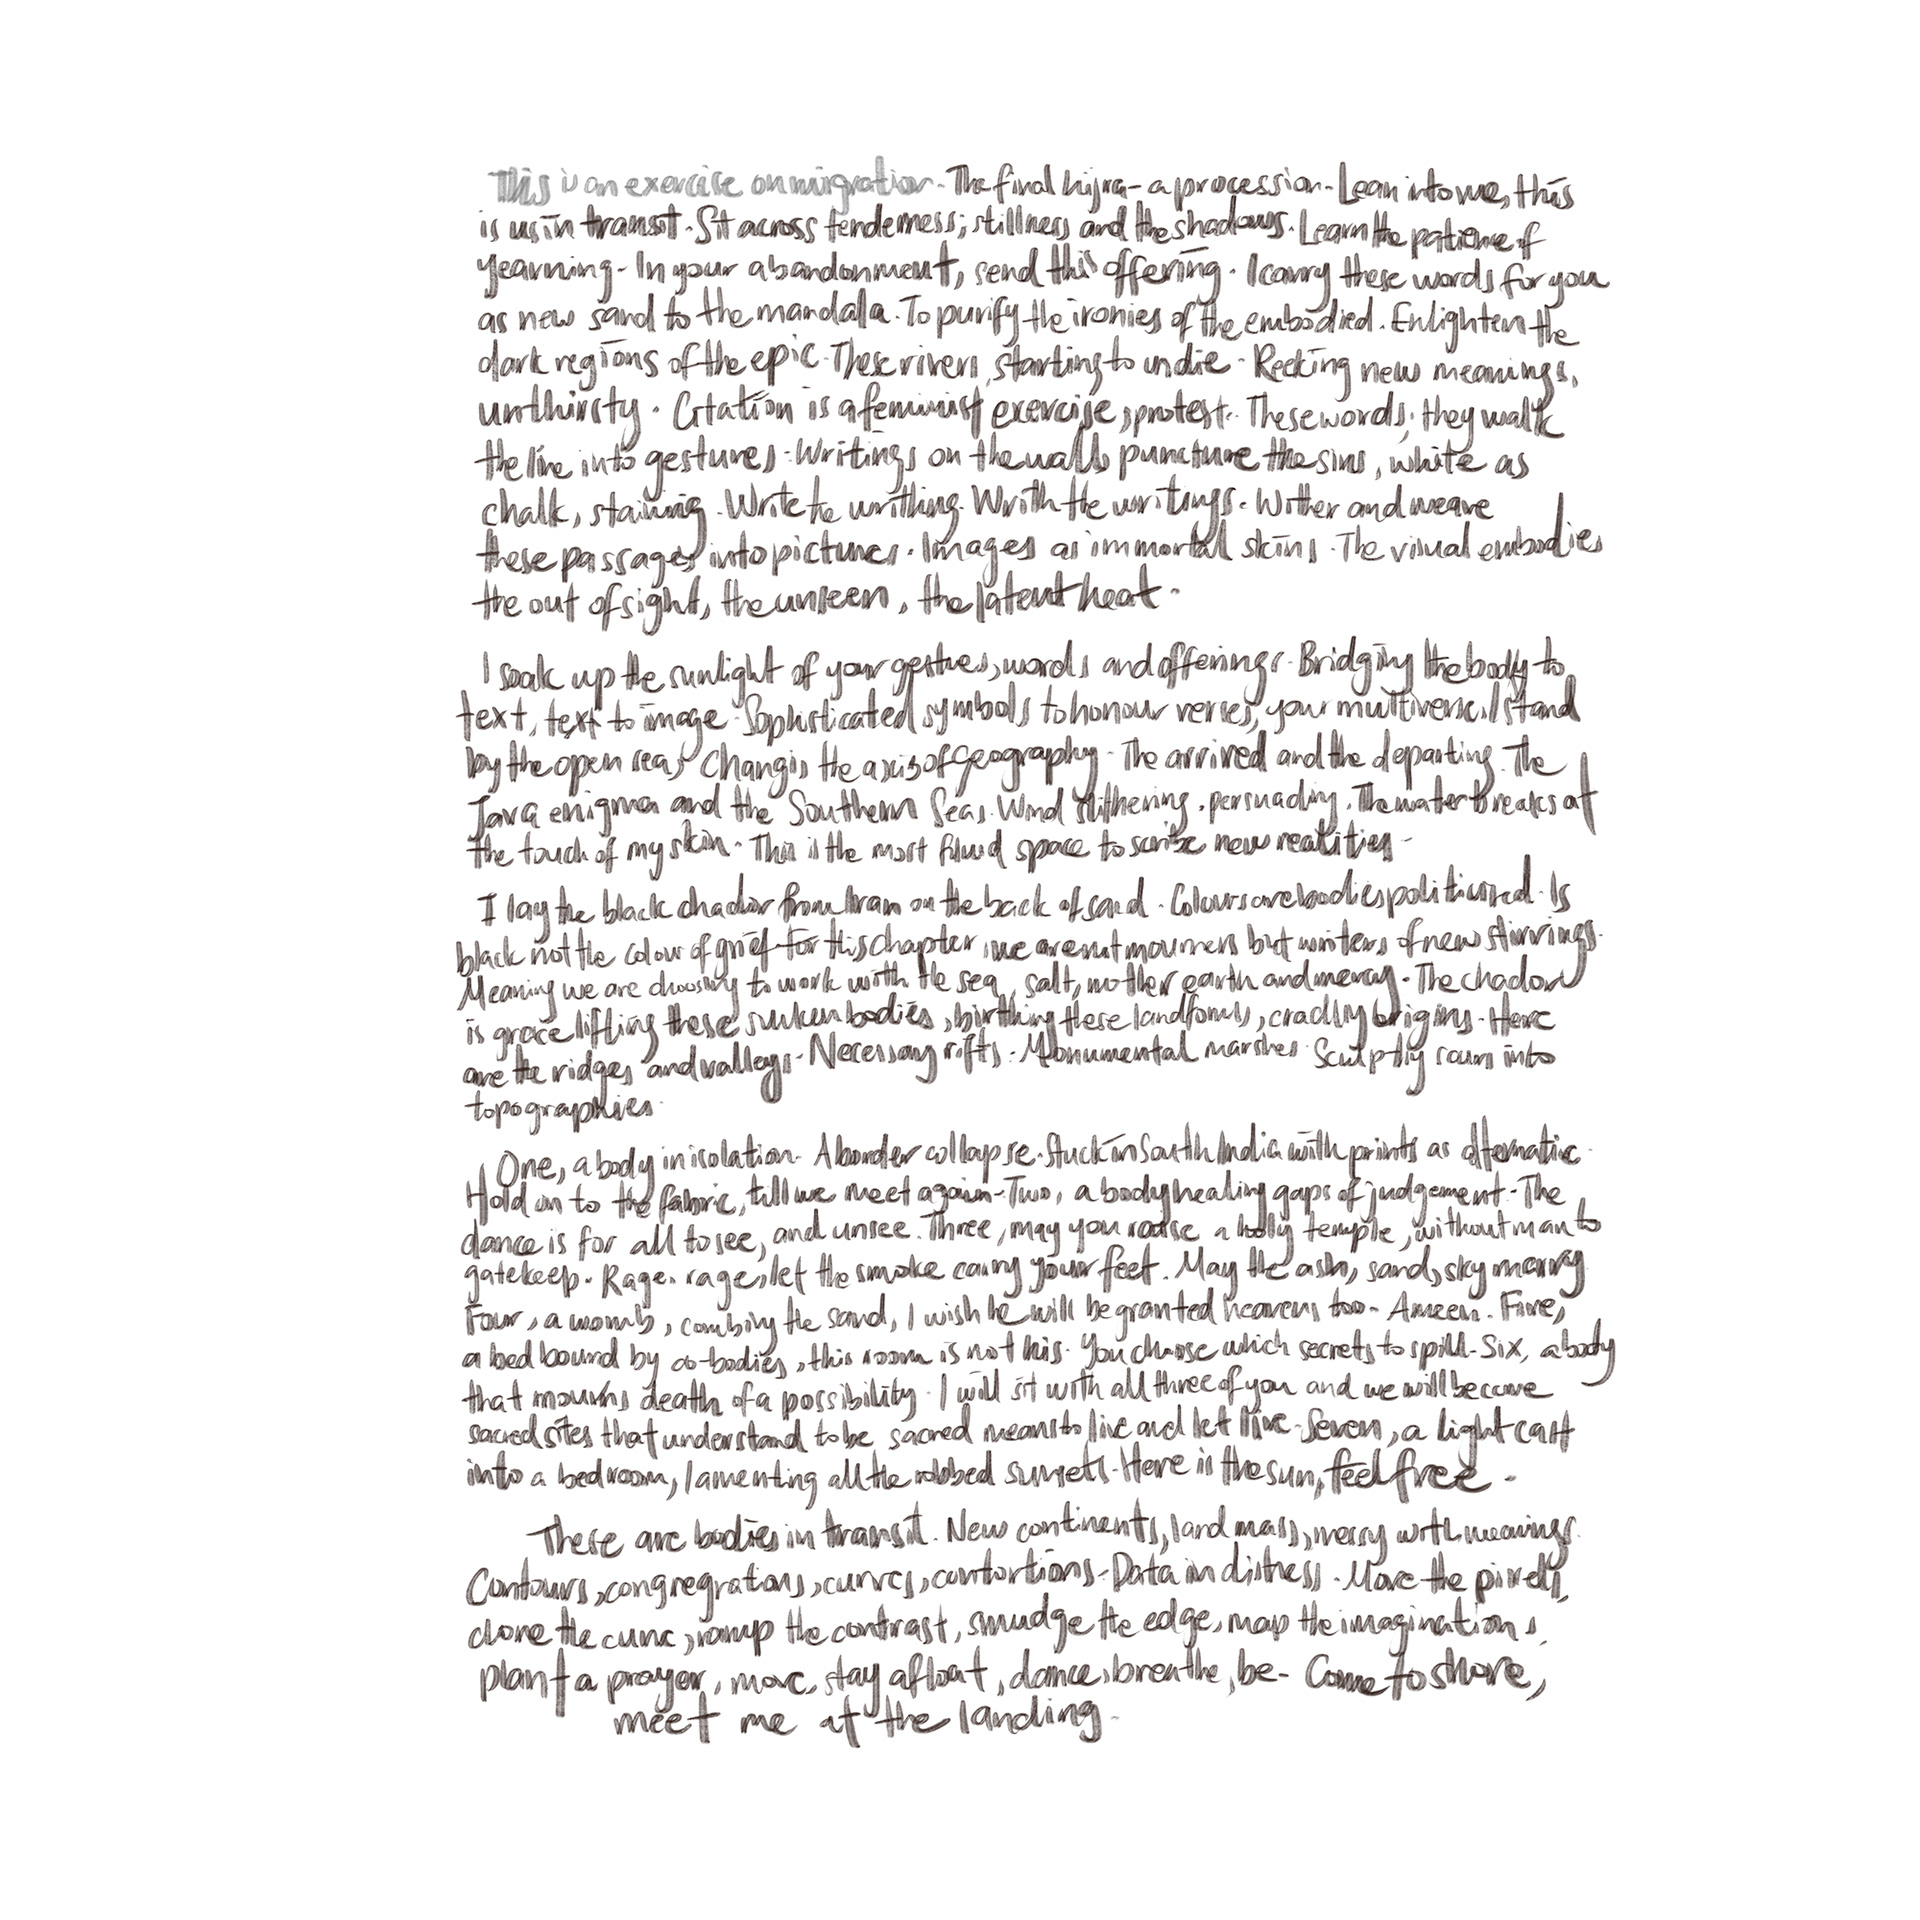 This is an exercise on migration. The final hijra - a procession. Lean into me, this
is us in transit. Sit across tenderness; stillness and the shadows. Learn the patience of
yearning. In your abandonment, send this offering. I carry these words for you
as new sand to the mandala. To purify the ironies of the embodied. Enlighten the
dark regions of the epic. These rivers, starting to undie. Reeking new meanings,
unthirsty. Citation is a feminist exercise, protest. These words, they walk
the line into gestures. Writings on the walls puncture the sins, white as
chalk, staining. Write the writhing. Writh the writings. Wither and weave
these passages into pictures. Images as immortal skins. The visual embodies
the out of sight, the unseen, the latent heat.
I soak up the sunlight of your gestures, words and offerings. Bridging the body to
text, text to image. Sophisticated symbols to honour verses, your multiverse. I stand
by the open sea, Changi, the axis of geography. The arrived and the departing. The
Java enigma and the Southern Seas. Wind slithering, persuading. The water breaks at
the touch of my skin. This is the most fluid space to scribe new realities.
I lay the black chador from Iran on the back of sand. Colours are bodies politicised. Is
black not the colour of grief for this chapter, we are not mourners but writers of new stirrings.
Meaning we are choosing to work with the sea, salt, mother earth and mercy. The chador
is grace lifting these sunken bodies, birthing these landforms, cradling origins. Here
are the ridges and valleys. Necessary rifts. Monumental marshes. Sculpting scars into
topographies.
One, a body in isolation. A border collapse. Stuck in South India with prints as alternative.
Hold on to the fabric, till we meet again. Two, a body healing gaps of judgement. The
dance is for all to see, and unsee. Three, may you raise a holy temple, without man to
gatekeep. Rage, rage, let the smoke carry your feet. May the ash, sand, sky marry
Four, a womb, combing the sand, I wish he will be granted heavens too. Ameen. Five,
a bed bound by co-bodies, this room is not his. You choose which secrets to spill. Six, a body
that mourns death of a possibility. I will sit with all three of you and we will become
sacred sites that understand to be sacred means to live and let live. Seven, a light cast
into a bedroom, lamenting all the robbed sunsets. Here is the sun, feel free.
These are bodies in transit. New continents, land mass, messy with meanings.
Contours, congregrations, curves, contortions. Data in distress. Move the pixels,
clone the curve, ramp the contrast, smudge the edge, map the imaginations,
plant a prayer, move, stay afloat, dance, breathe, be. Come to shore,
meet me at the landing.